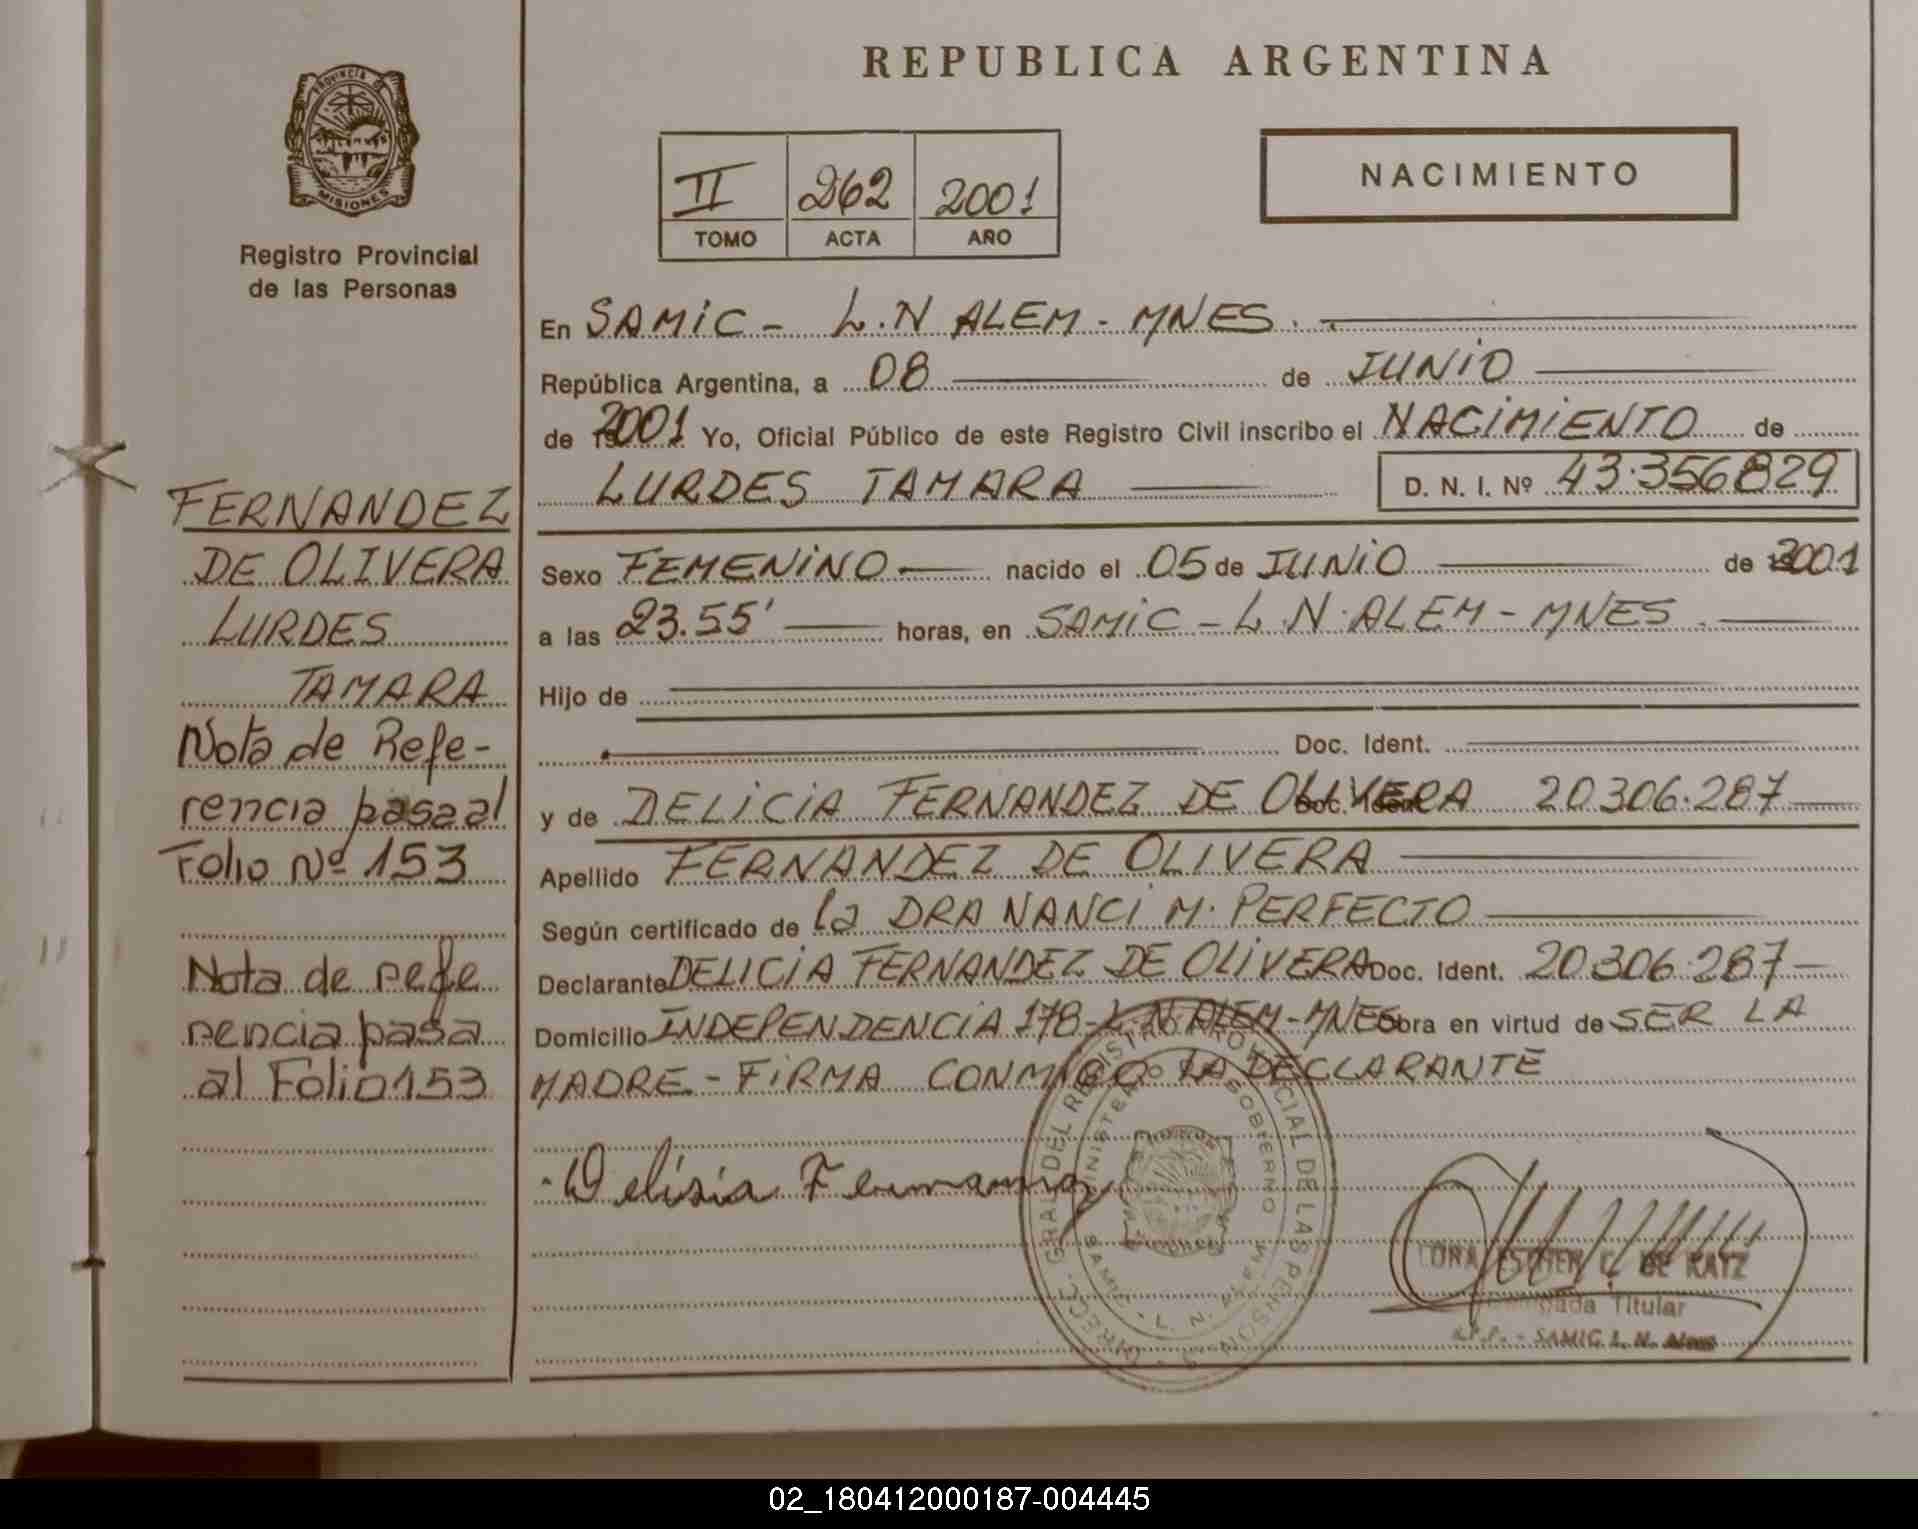 PROVINCIA DE
MISIONES
Registro Provincial
de las Personas
FERNANDEZ
DE OLIVERA
LURDES
TAMARA
Nota de Refe-
rencia pasa al
Folio Nº 153
Nota de refe
rencia pasa
al Folio 153
REPUBLICA ARGENTINA
II 262 2001
TOMO ACTA AÑO
NACIMIENTO
En SAMIC - L.N ALEM - MNES.
República Argentina, a 08 de JUNIO
de 2001 Yo, Oficial Público de este Registro Civil inscribo el NACIMIENTO de
LURDES TAMARA D. N. I. Nº 43.356829
Sexo FEMENINO nacido el 05 de JUNIO de 2001
a las 23.55' horas, en SAMIC - L.N. ALEM - MNES.
Hijo de
Doc. Ident.
y de DELICIA FERNANDEZ DE OLIVERA Doc. Ident. 20.306.287
Apellido FERNANDEZ DE OLIVERA
Según certificado de la DRA NANCI M. PERFECTO
Declarante DELICIA FERNANDEZ DE OLIVERA Doc. Ident. 20.306.287-
Domicilio INDEPENDENCIA 178-L.N ALEM-MNES Obra en virtud de SER LA
MADRE - FIRMA CONMIGO LA DECLARANTE
DIRECC. GRAL DEL REGISTRO PROVINCIAL DE LAS PERSONAS
MINISTERIO GOBIERNO
SAMIC - L. N. ALEM
Delisia
ESTHER C. DE KATZ
Titular
SAMIC L. N. Alem
02_180412000187-004445